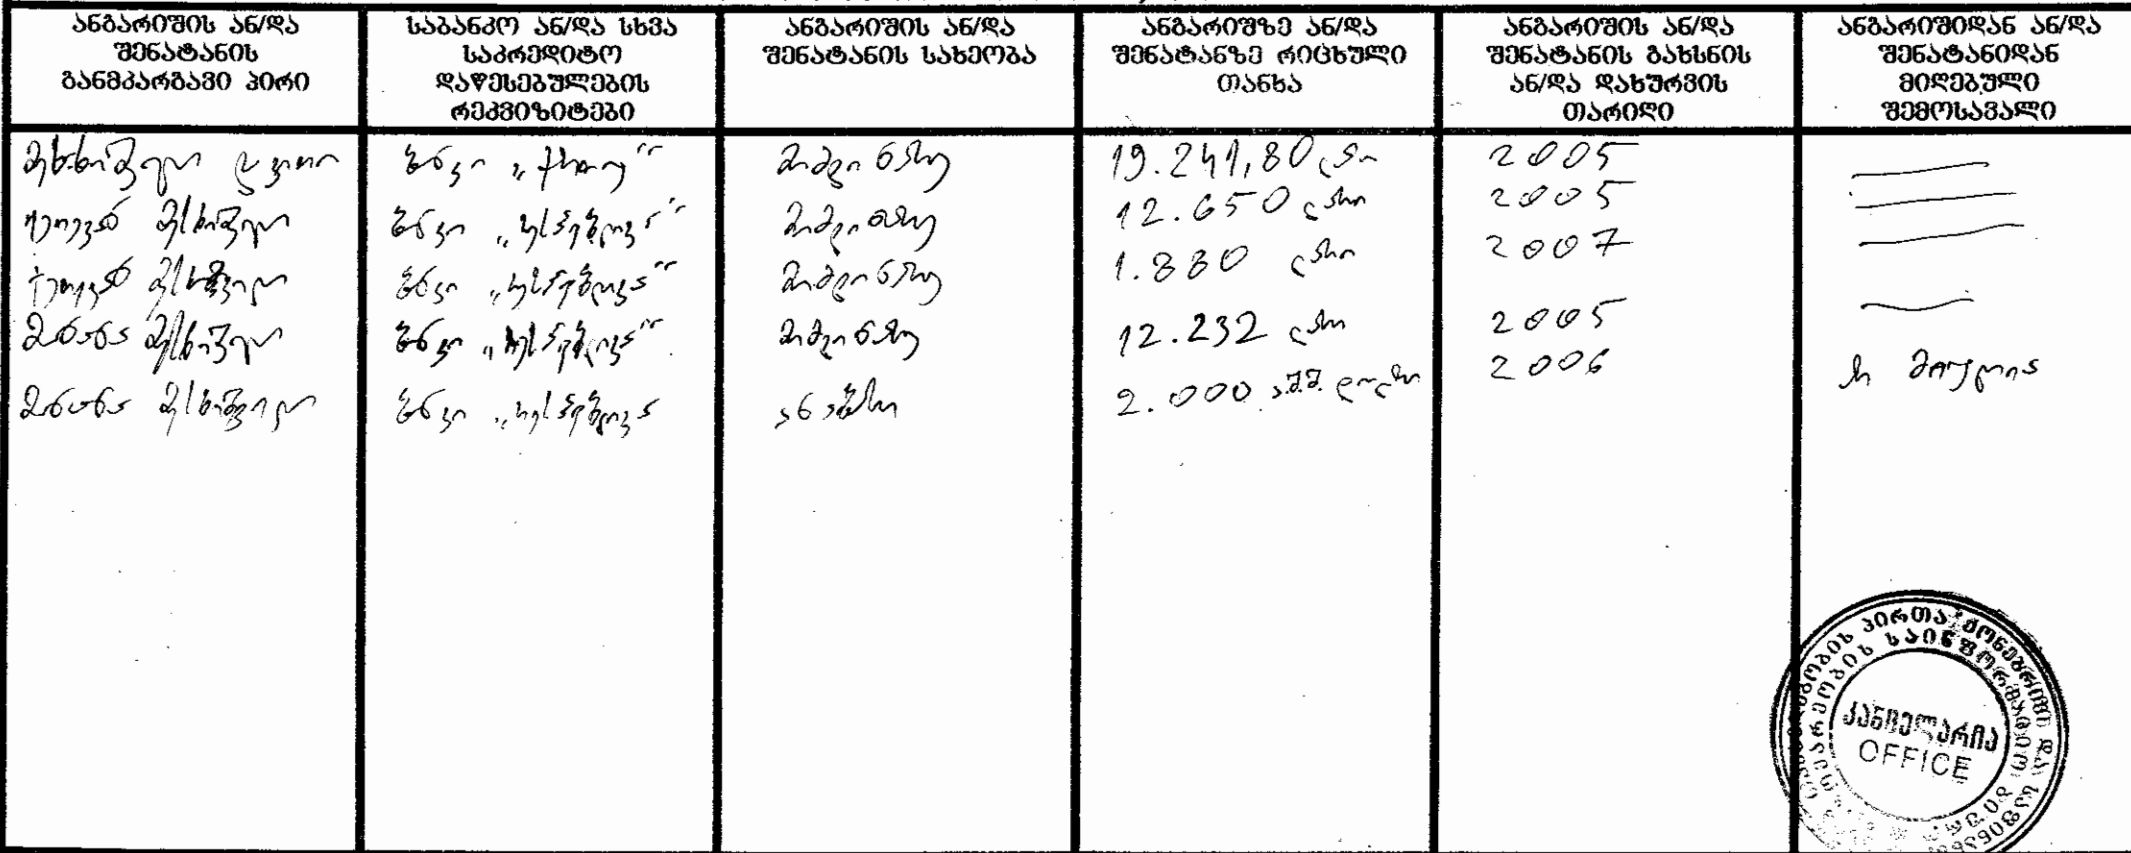 ანგარიშის ან/და შენატანის განმკარგავი პირი
საბანკო ან/და სხვა საკრედიტო დაწესებულების რეკვიზიტები
ანგარიშის ან/და შენატანის სახეობა
ანგარიშზე ან/და შენატანზე რიცხული თანხა
ანგარიშის ან/და შენატანის გახსნის ან/და დახურვის თარიღი
ანგარიშიდან ან/და შენატანიდან მიღებული შემოსავალი
ბანკი მიმდინარე 19.241,80 ლარი 2005
მესხიშვილი ბანკი „რესპუბლიკა“ მიმდინარე 12.650 ლარი 2005
მესხიშვილი ბანკი „რესპუბლიკა“ მიმდინარე 1.880 ლარი 2007
მანანა მესხიშვილი ბანკი „რესპუბლიკა“ მიმდინარე 12.232 ლარი 2005
მანანა მესხიშვილი ბანკი „რესპუბლიკა ანაბარი 2.000 აშშ დოლარი 2006 არ მიუღია
კანცელარია
OFFICE